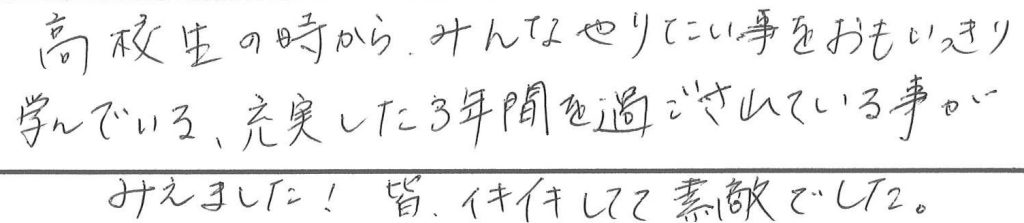 高校生の時から、みんなやりたい事をおもいっきり
学んでいる、充実した3年間を過ごされている事が
みえました！ 皆、イキイキしてて素敵でした。